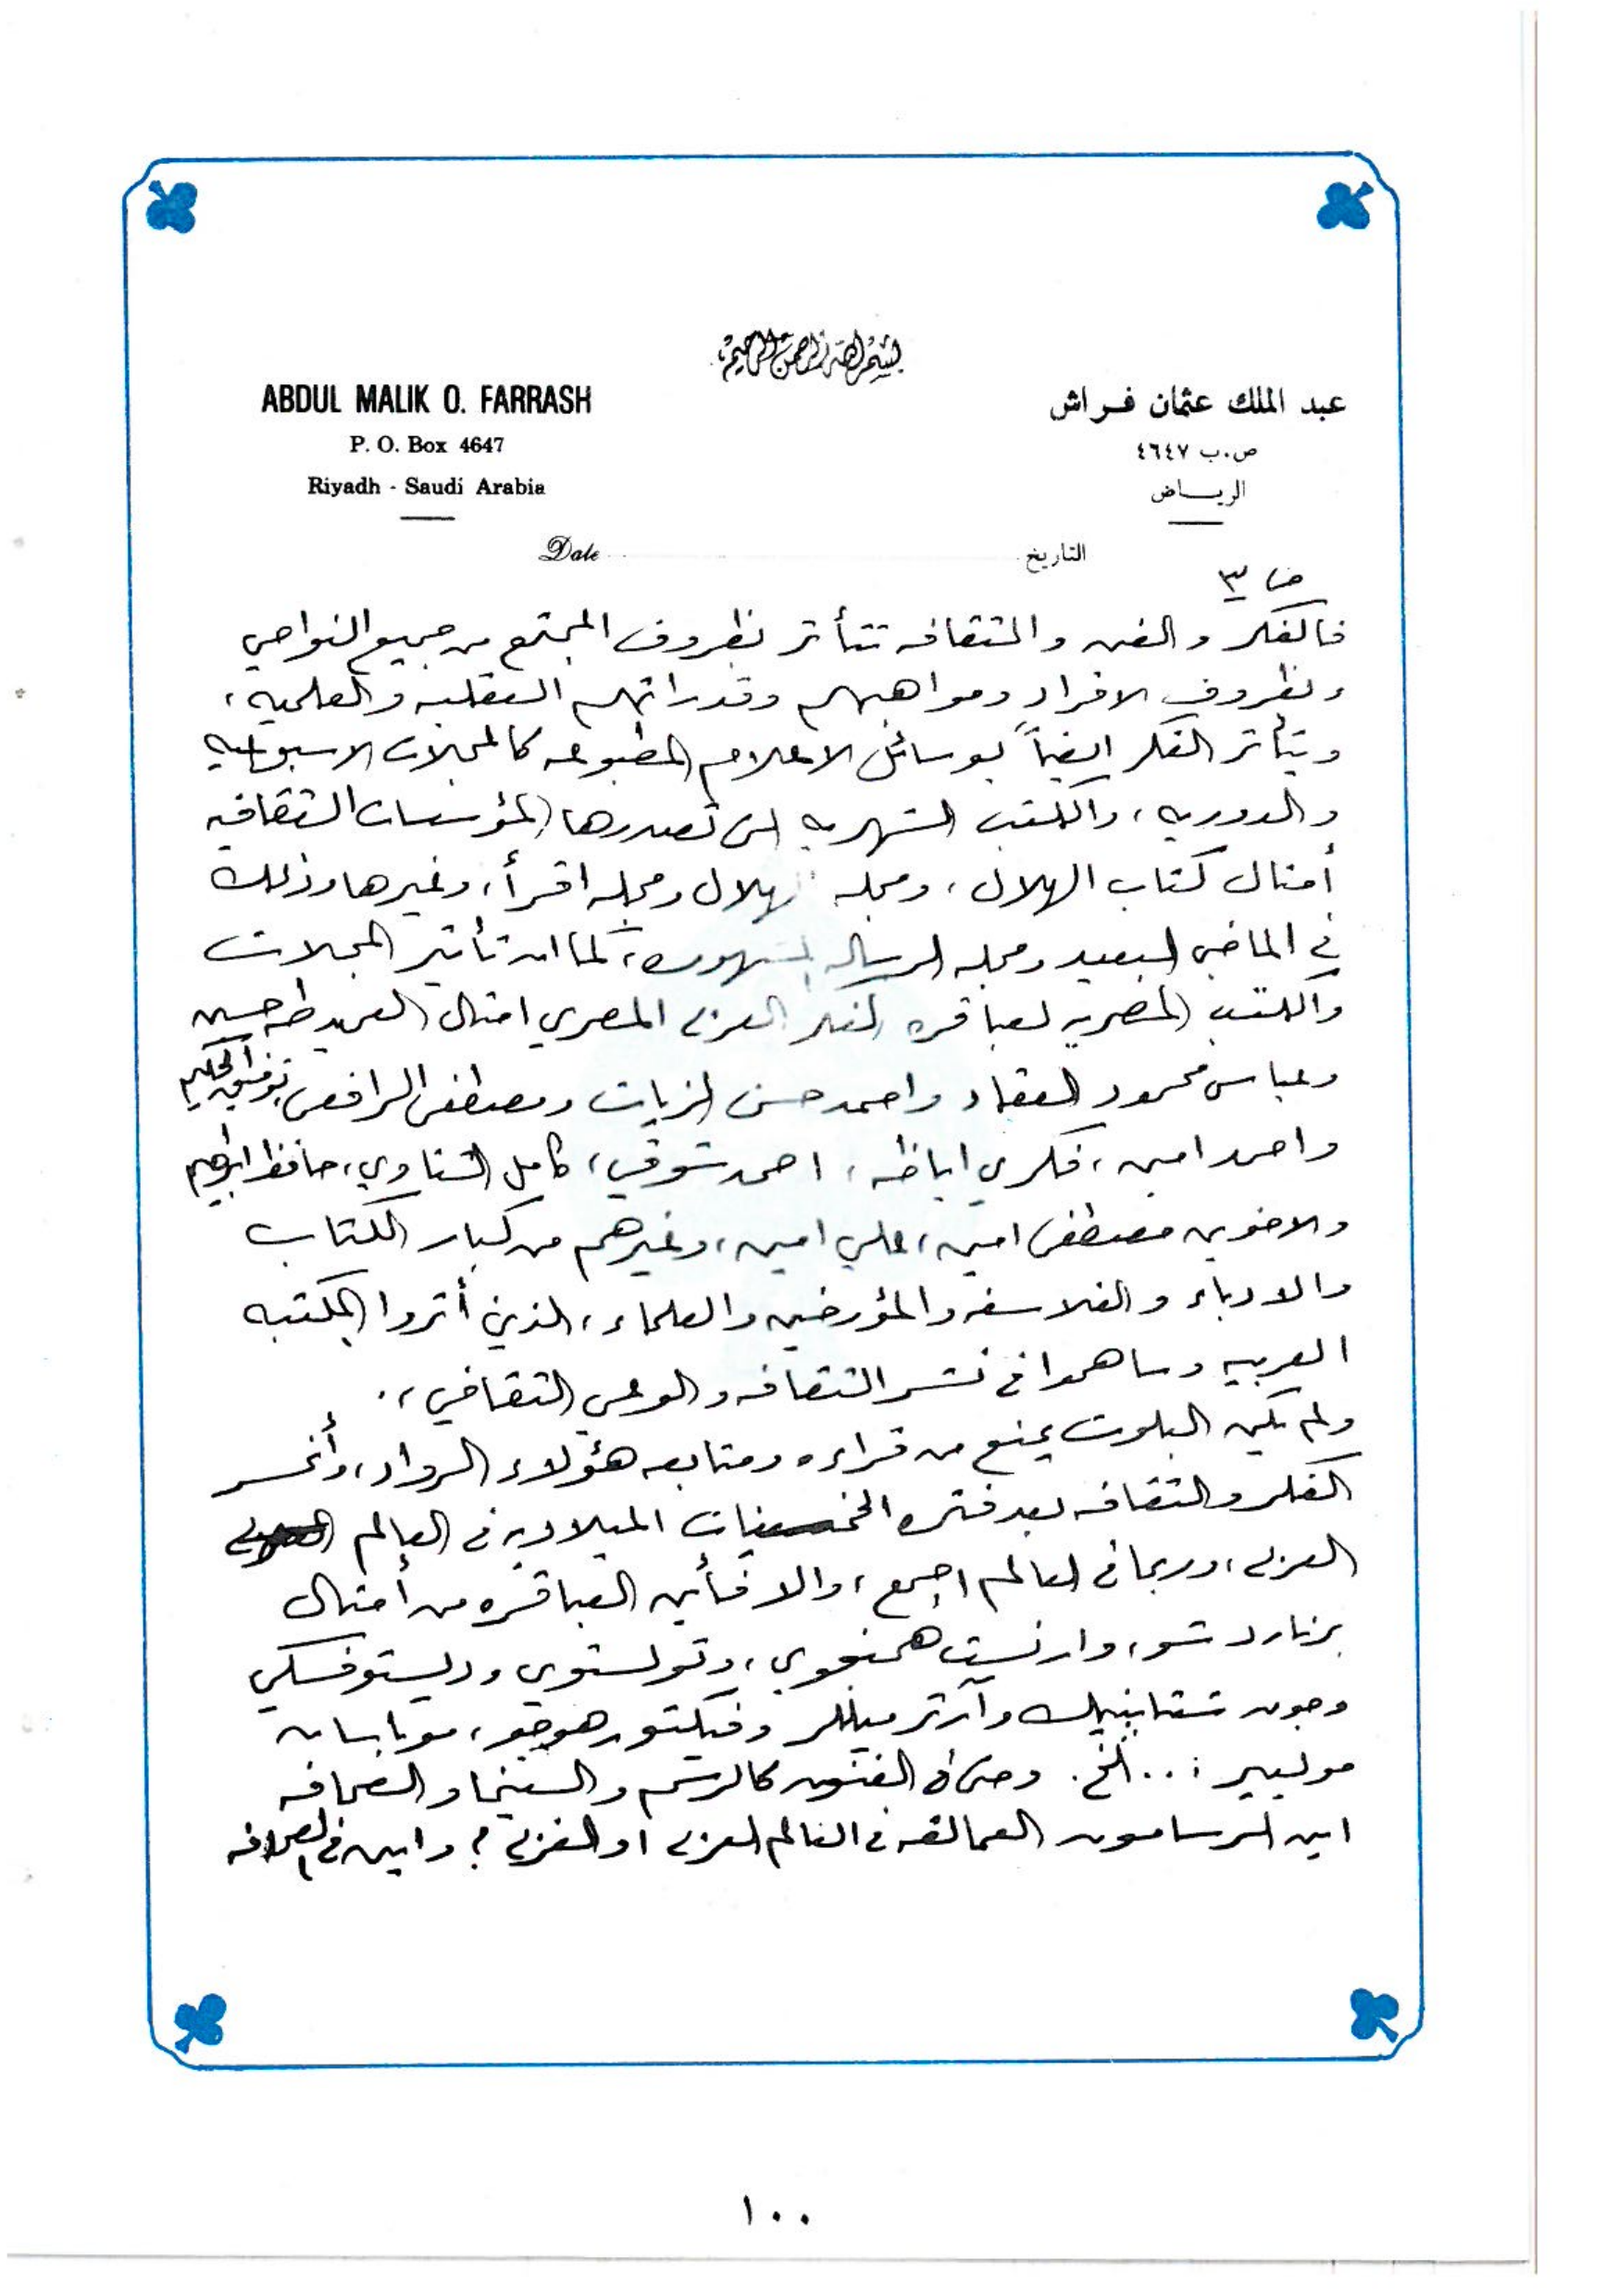 بسم الله الرحمن الرحيم
ABDUL MALIK O. FARRASH
P. O. Box 4647
Riyadh - Saudi Arabia
عبد الملك عثمان فراش
ص.ب ٤٦٤٧
الرياض
Date
التاريخ
ص ٣
فالفكر والفن والثقافه تتأثر بظروف المجتمع من جميع النواحي
وبظروف الافراد ومواهبهم وقدراتهم العقليه والعلميه،
ويتأثر الفكر ايضاً بوسائل الاعلام المطبوعه كالمجلات الاسبوعيه
والدوريه، والكتب الشهريه التى تصدرها المؤسسات الثقافيه
أمثال كتاب الهلال، ومجله الهلال ومجله اقرأ، وغيرها وذلك
في الماضي البعيد ومجله الرساله المشهوره، كما ان تأثير المجلات
والكتب المصريه لعباقره الفكر العربى المصري امثال العميد طه حسين
وعباس محمود العقاد واحمد حسن الزيات ومصطفى الرافعى، توفيق الحكيم
واحمد امين، فكري اباظه، احمد شوقي، كامل الشناوي، حافظ ابراهيم
والاخوين مصطفى امين، علي امين، وغيرهم من كبار الكتاب
والادباء والفلاسفه والمؤرخين والعلماء، الذين أثروا المكتبه
العربيه وساهموا فى نشر الثقافه والوعى الثقافي،.
ولم يكن البلوت يمنع من قراءه ومتابعه هؤلاء الرواد، وأنحسر
الفكر والثقافه بعد فتره الخمسينات الميلاديه فى العالم
العربى، وربما فى العالم اجمع، والا فأين العباقره من أمثال
برنارد شو، وارنست همنجوي، وتولستوى وديستوفسكي
وجون شتاينبيك وآرثر ميللر وفيكتور هوجو، موباسان
موليير ... الخ. وحتى فى الفنون كالرسم والسينما والصحافه
اين الرسامون العمالقه فى العالم العربى او الغربى؟ واين فى الصحافه
١٠٠